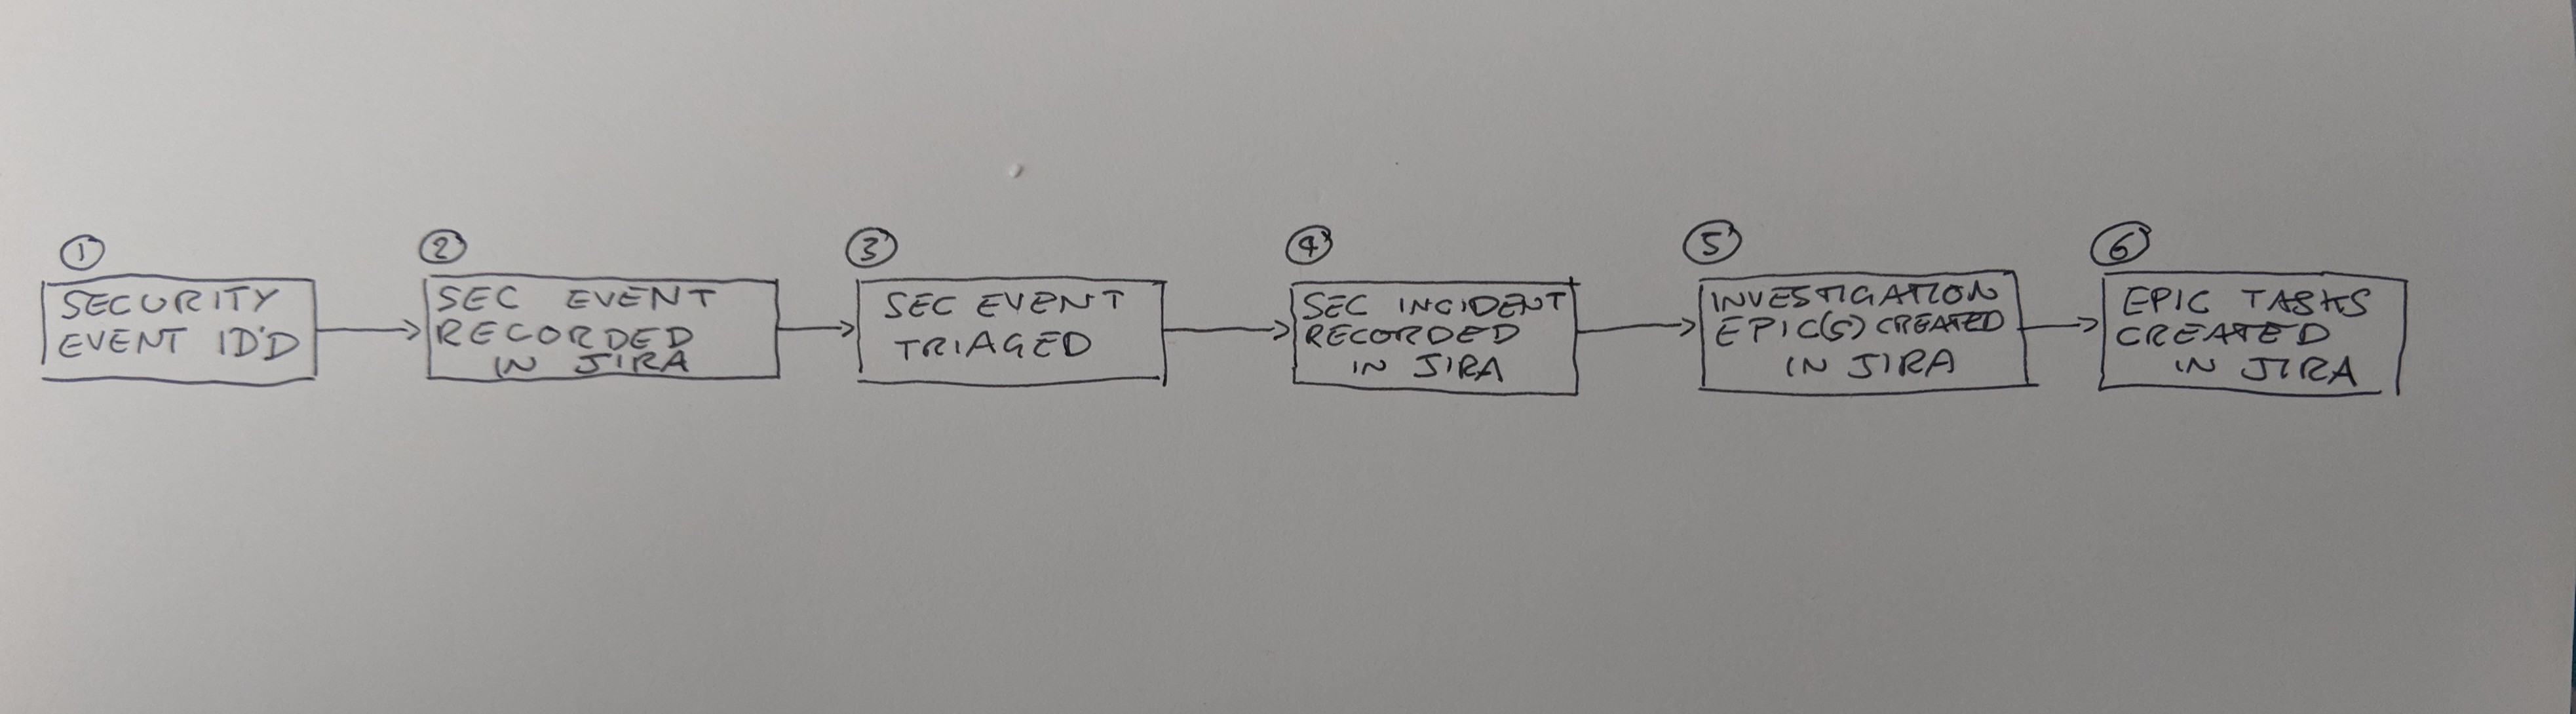 1
SECURITY
EVENT ID'D
2
SEC EVENT
RECORDED
IN JIRA
3
SEC EVENT
TRIAGED
4
SEC INCIDENT
RECORDED
IN JIRA
5
INVESTIGATION
EPIC(S) CREATED
IN JIRA
6
EPIC TASKS
CREATED
IN JIRA